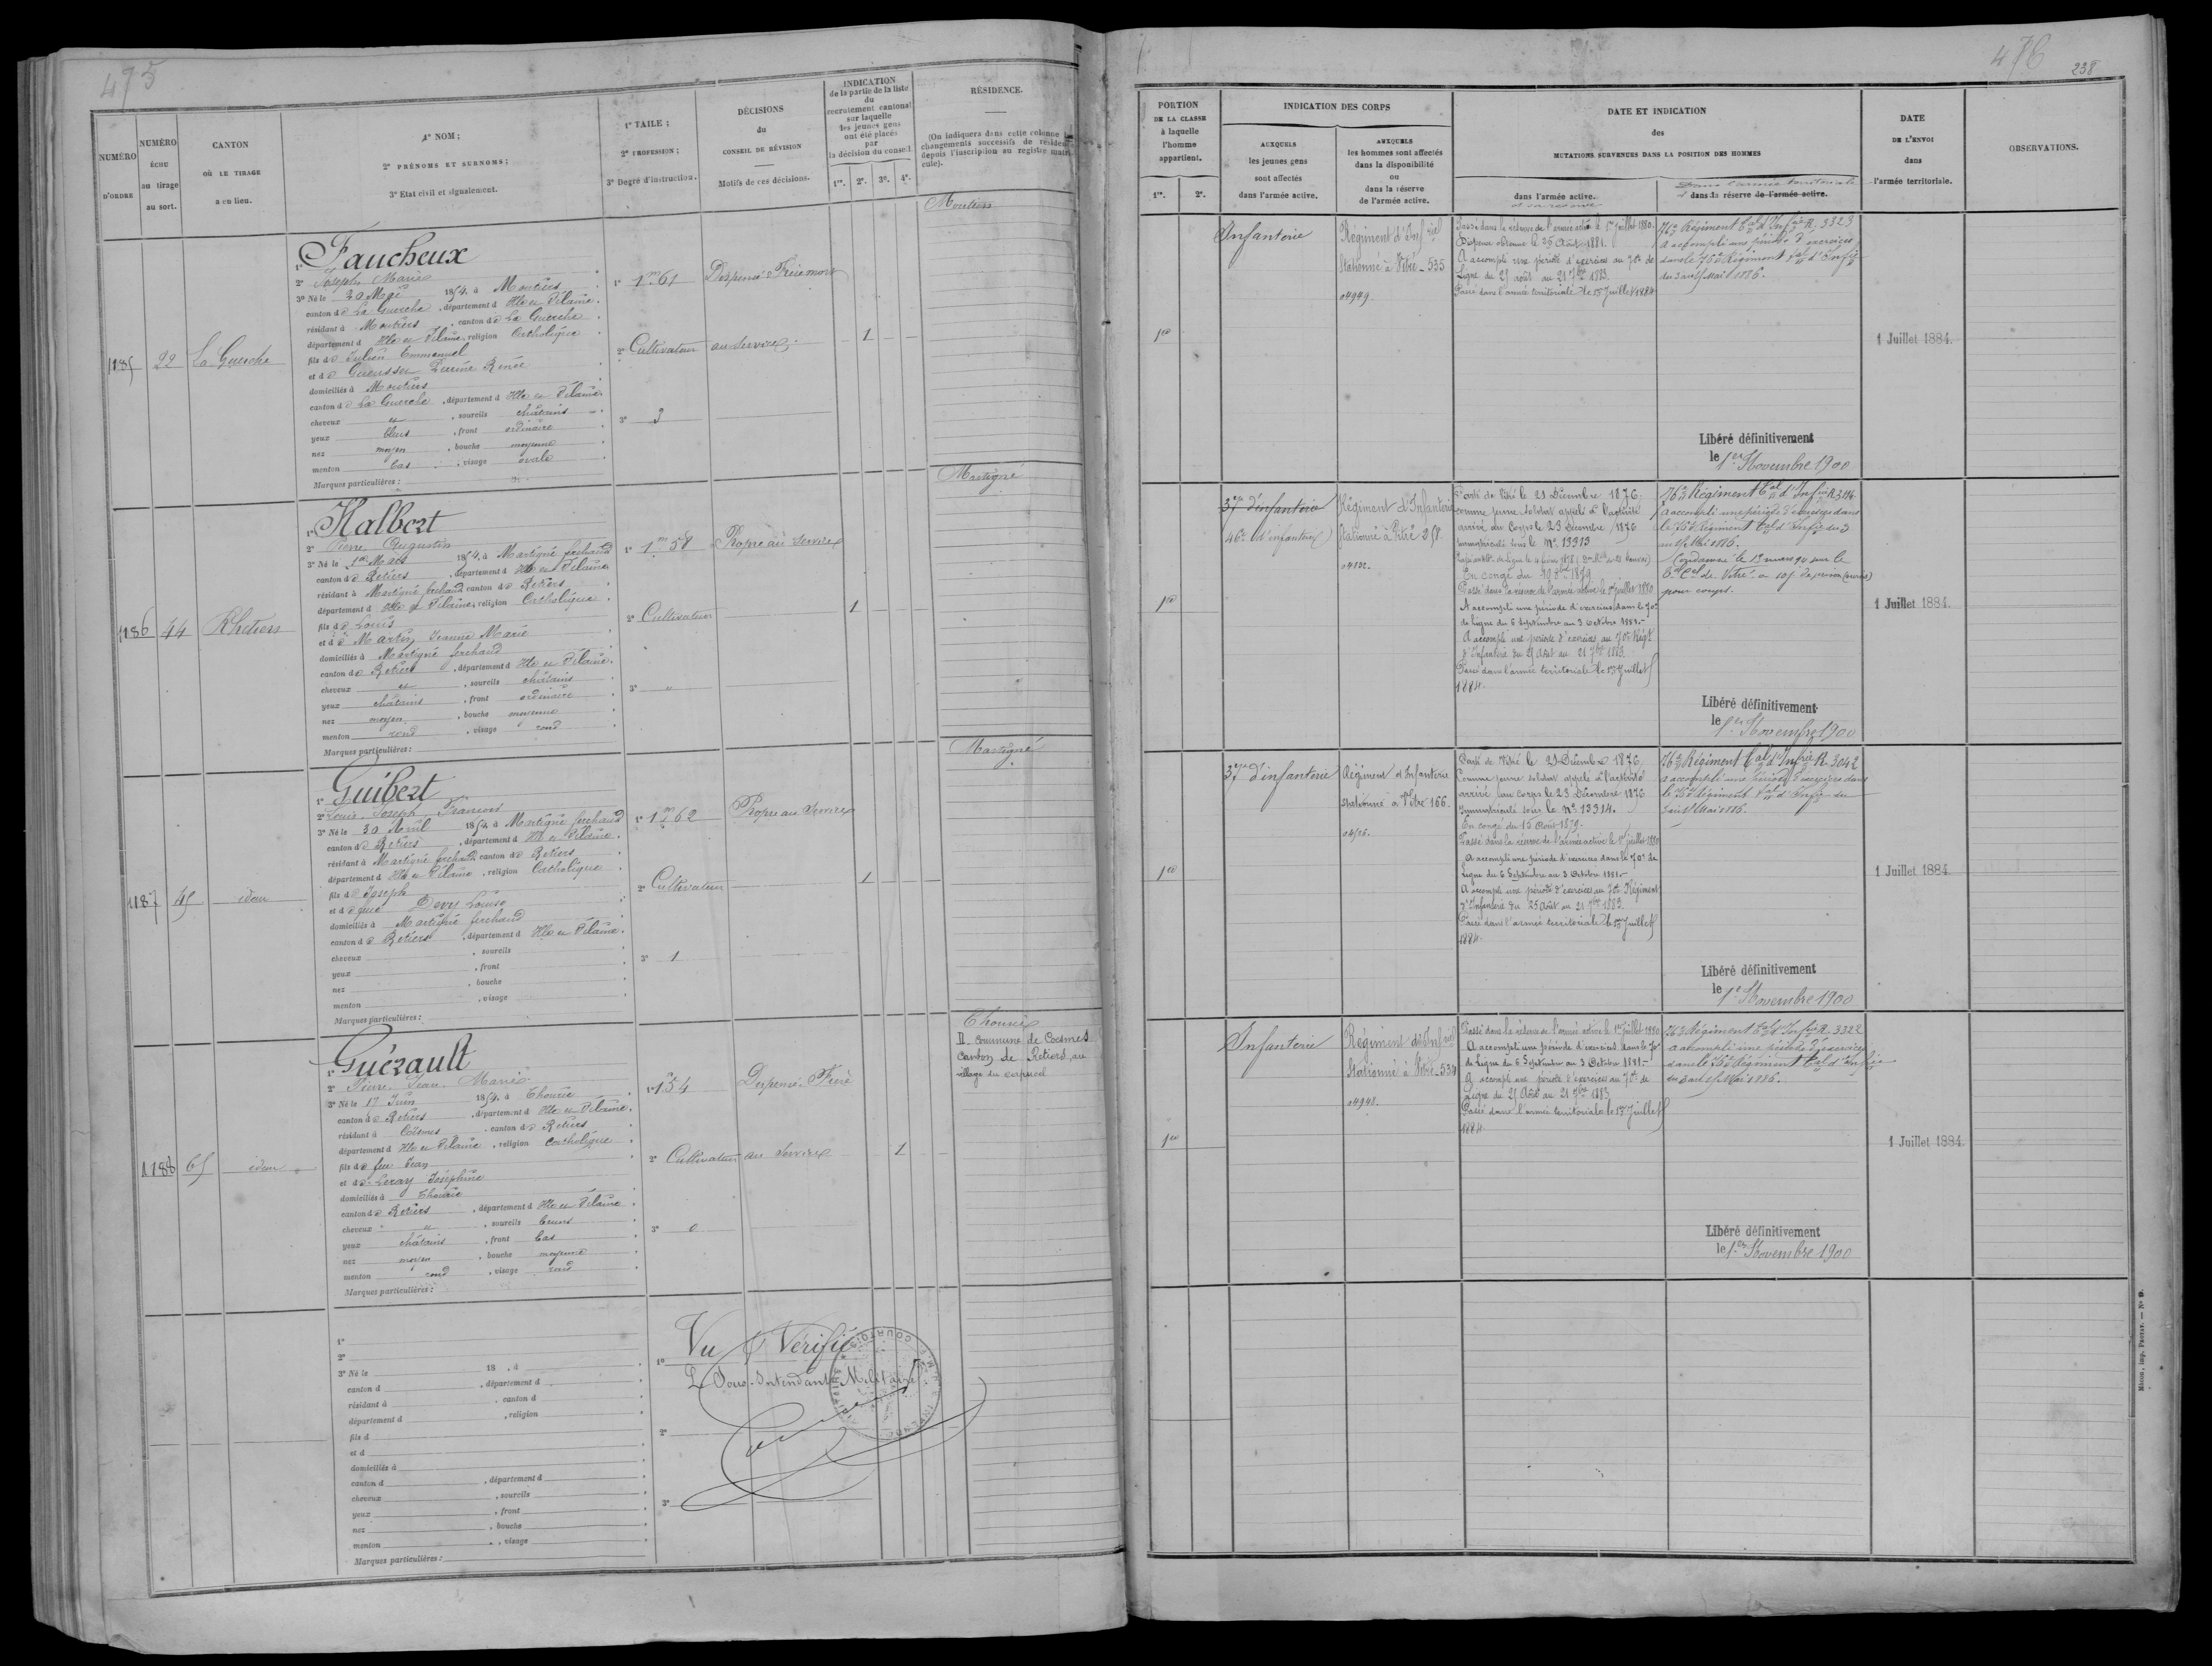 475
NUMÉRO
D'ORDRE
NUMÉRO
ÉCHU
au tirage
au sort.
CANTON
OÙ LE TIRAGE
a eu lieu.
1° NOM;
2° PRÉNOMS ET SURNOMS;
3° Etat civil et signalement.
1° TAILE;
2° PROFESSION;
3° Degré d'instruction.
DÉCISIONS
du
CONSEIL DE RÉVISION
Motifs de ces décisions.
INDICATION
de la partie de la liste
du
recrutement cantonal
sur laquelle
les jeunes gens
ont été placés
par
la décision du conseil
1re. 2e. 3e. 4e.
RÉSIDENCE.
(On indiquera dans cette colonne les
changements successifs de résidence
depuis l'inscription au registre matri-
cule).
1185
22
La Guerche
1° Faucheux
2° Joseph Marie
3° Né le 30 Mai 1854, à Moutiers
canton de La Guerche, département d Ille et Vilaine.
résidant à Moutiers, canton de La Guerche
département d Ille et Vilaine, religion Catholique
fils de Julien Emmanuel
et de Gueusset Perrine Renée
domiciliés à Moutiers
canton de La Guerche, département d Ille et Vilaine
cheveux et, sourcils châtains
yeux bleus, front ordinaire
nez moyen, bouche moyenne
menton bas, visage ovale
Marques particulières:
1° 1m 61
2° Cultivateur
3° 3
Dispensé Frère mort
au service
1
Moutiers
1186
44
Rhetiers
1° Halbert
2° Pierre Augustin
3° Né le 1er Mars 1854, à Martigné ferchaud
canton de Retiers, département d Ille et Vilaine
résidant à Martigné ferchaud canton de Retiers
département d Ille et Vilaine, religion Catholique
fils de Louis
et de Martin Jeanne Marie
domiciliés à Martigné ferchaud
canton de Retiers, département d Ille et Vilaine.
cheveux et, sourcils châtains
yeux châtains, front ordinaire
nez moyen, bouche moyenne
menton rond, visage rond
Marques particulières:
1° 1m 58
2° Cultivateur
3° "
Propre au service
1
Martigné
1187
45
idem
1° Guibert
2° Louis Joseph François
3° Né le 30 Avril 1854, à Martigné ferchaud
canton de Retiers, département d Ille et Vilaine.
résidant à Martigné ferchaud canton de Retiers
département d Ille et Vilaine, religion Catholique
fils de Joseph
et de feue Devy Louise
domiciliés à Martigné ferchaud
canton de Retiers, département d Ille et Vilaine.
cheveux, sourcils
yeux, front
nez, bouche
menton, visage
Marques particulières:
1° 1m 62
2° Cultivateur
3° 1
Propre au service
1
Martigné
1188
65
idem
1° Guérault
2° Pierre Jean Marie
3° Né le 17 Juin 1854, à Thourie
canton de Retiers, département d Ille et Vilaine.
résidant à Coësmes, canton de Retiers
département d Ille et Vilaine, religion Catholique
fils de feu Jean
et de Leray Joséphine
domiciliés à Thourie
canton de Retiers, département d Ille et Vilaine.
cheveux ", sourcils bruns
yeux châtains, front bas
nez moyen, bouche moyenne
menton rond, visage rond
Marques particulières:
1° 1m 54
2° Cultivateur
3° 0
Dispensé Frère
au service
1
Thourie
D. commune de Coesmes
canton de Retiers, au
village du
1°
2°
3° Né le 18 , à
canton d , département d
résidant à , canton d
département d , religion
fils d
et d
domiciliés à
canton d , département d
cheveux , sourcils
yeux , front
nez , bouche
menton , visage
Marques particulières:
1°
2°
3°
Vu & Vérifié
Le Sous-Intendant Militaire
476
238
PORTION
DE LA CLASSE
à laquelle
l'homme
appartient.
1re. 2e.
INDICATION DES CORPS
AUXQUELS
les jeunes gens
sont affectés
dans l'armée active.
AUXQUELS
les hommes sont affectés
dans la disponibilité
ou
dans la réserve
de l'armée active.
DATE ET INDICATION
des
MUTATIONS SURVENUES DANS LA POSITION DES HOMMES
dans l'armée active.
et sa réserve
Dans l'armée territoriale
et dans la réserve de l'armée active.
DATE
DE L'ENVOI
dans
l'armée territoriale.
OBSERVATIONS.
1re
Infanterie
Régiment d'Infrie
Stationné à Vitré _ 535
04949
Passé dans la réserve de l'armée active le 1er Juillet 1880.
Dispense obtenue le 25 Août 1881.
A accompli une période d'exercices au 70e de
Ligne du 25 août au 21 7bre 1883.
Passé dans l'armée territoriale le 1er Juillet 1884
76e Régiment tal d'Infrie R. 3323
a accompli une période d'exercices
dans le 76e Régiment tal d'Infrie
du 3 au 15 Mai 1886.
Libéré définitivement
le 1er Novembre 1900
1 Juillet 1884.
1re
37e d'infanterie
46e (d'infanterie)
Régiment d'Infanterie
Stationné à Vitré 258.
04132.
Parti de Vitré le 21 Décembre 1876
comme jeune soldat appelé à l'activité
arrivé au Corps le 23 Décembre 1876
immatriculé sous le No 13313
En congé du 19 7bre 1879
Passé dans la réserve de l'armée active le 1er juillet 1880
A accompli une période d'exercices dans le 70e
de Ligne du 6 Septembre au 3 Octobre 1881.-
A accompli une période d'exercices au 70e Régt
d'Infanterie du 25 Août au 21 7bre 1883.
Passé dans l'armée territoriale le 1er Juillet
1884.
76e Régiment tal d'Infrie R. 3114
a accompli une période d'exercices dans
le 76e Régiment tal d'Infrie du 3
au 15 Mai 1886.
Condamné le 19 mars 90 par le
de Vitré à 10j. de prison
pour coups.
Libéré définitivement
le 1er Novembre 1900
1 Juillet 1884.
1re
37e d'infanterie
Régiment d'Infanterie
stationné à Vitré 166.
Parti de Vitré le 21 Décembre 1876
Comme jeune soldat appelé à l'activité
arrivé au Corps le 23 Décembre 1876
Immatriculé sous le No 13314.
En congé du 15 Août 1879.
Passé dans la réserve de l'armée active le 1er juillet 1880
A accompli une période d'exercices dans le 70e de
Ligne du 6 Septembre au 3 Octobre 1881.-
A accompli une période d'exercices au 70e Régiment
d'Infanterie du 25 Août au 21 7bre 1883.
Passé dans l'armée territoriale le 1er Juillet
1884.
76e Régiment tal d'Infrie R. 3042
a accompli une période d'exercices dans
le 76e Régiment tal d'Infrie du
3 au 15 Mai 1886.
Libéré définitivement
le 1er Novembre 1900
1 Juillet 1884.
1re
Infanterie
Régiment d'Infrie
Stationné à Vitré _ 534
04948.
Passé dans la réserve de l'armée active le 1er juillet 1880
A accompli une période d'exercices dans le 70e
de Ligne du 6 Septembre au 3 Octobre 1881.-
A accompli une période d'exercices au 70e de
Ligne du 25 Août au 21 7bre 1883
Passé dans l'armée territoriale le 1er Juillet
1884.
76e Régiment tal d'Infrie R. 3322
a accompli une période d'exercices
dans le 76e Régiment tal d'Infrie
du 3 au 15 Mai 1886.
Libéré définitivement
le 1er Novembre 1900
1 Juillet 1884.
Mâcon, imp. Protat. — N° 9.